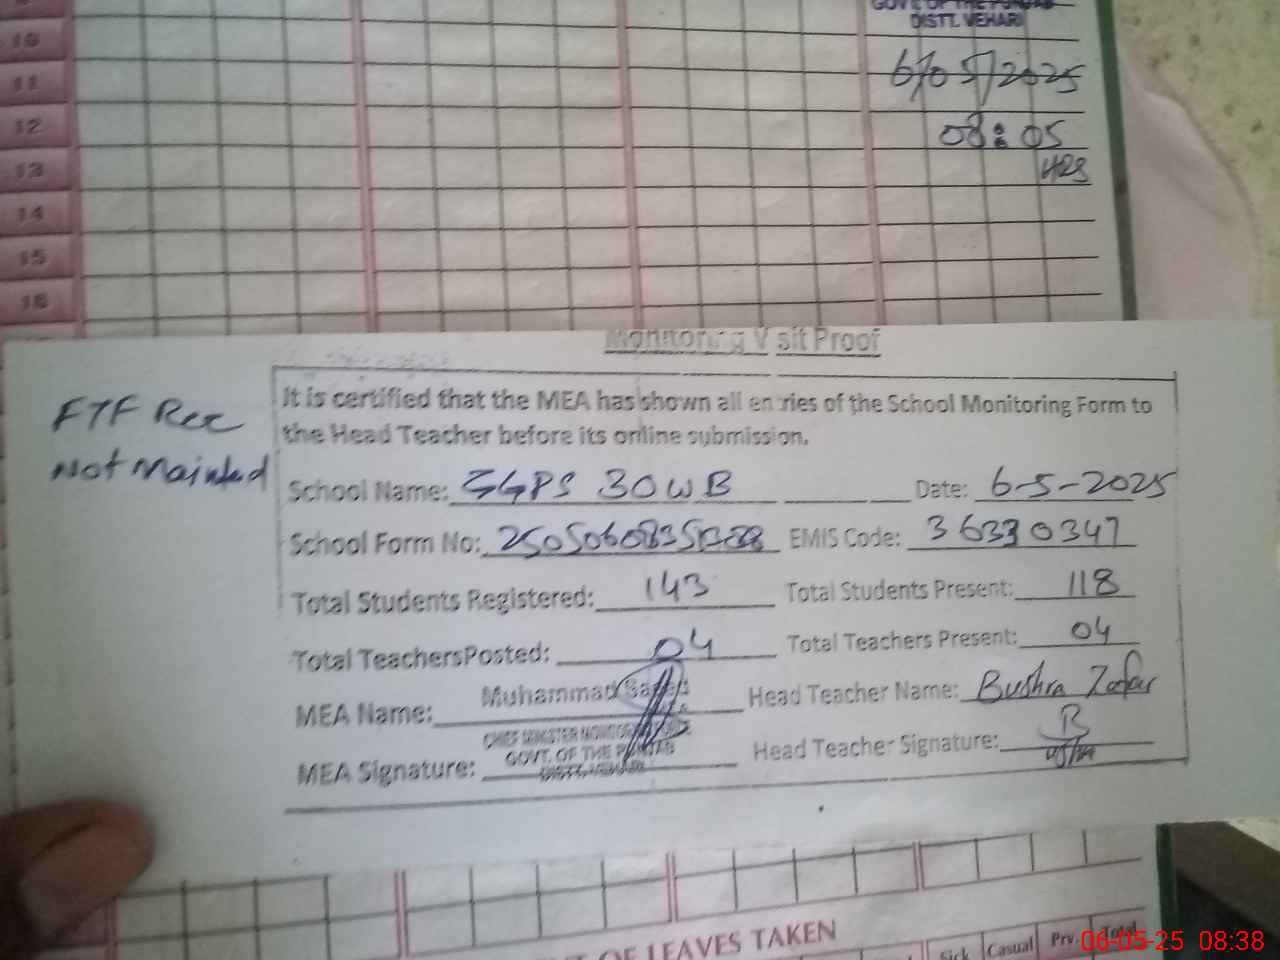 GOVT. OF THE PUNJAB
DISTT. VEHARI
10
11
12
13
14
15
16
6/05/2025
08:05
HRS
Monitoring Visit Proof
It is certified that the MEA has shown all entries of the School Monitoring Form to
the Head Teacher before its online submission.
FTF Rec
Not Mainted
School Name: GGPS 30WB Date: 6-5-2025
School Form No: EMIS Code: 36330347
Total Students Registered: 143 Total Students Present: 118
Total TeachersPosted: 04 Total Teachers Present: 04
MEA Name: Muhammad Head Teacher Name: Bushra Zafar
MEA Signature: CHIEF MINISTER MONITORING Head Teacher Signature:
GOVT. OF THE PUNJAB
DISTT. VEHARI
OF LEAVES TAKEN
Sick Casual Prv. Total
06-05-25 08:38